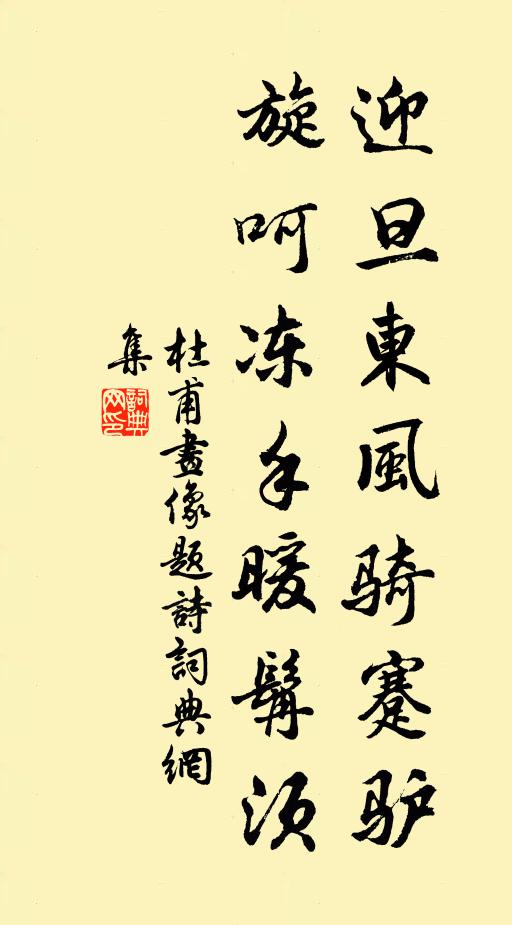 迎旦東風骑蹇驴
旋呵冻手暖髯须
杜甫畫像题詩詞典網
集
詞典
网印